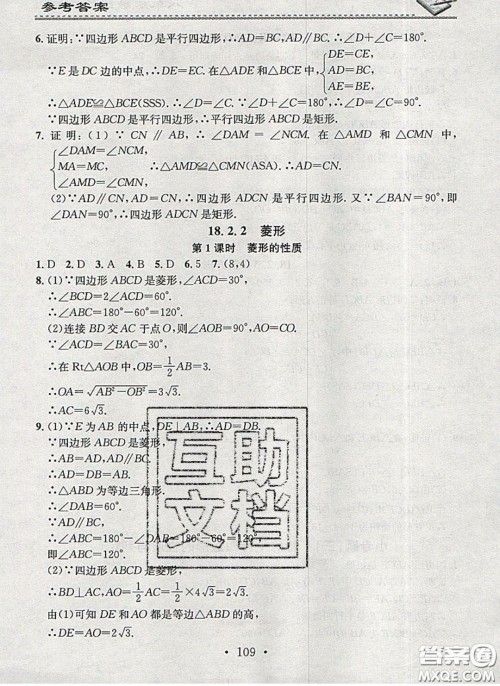 参考答案
6. 证明：∵四边形 ABCD 是平行四边形，∴AD=BC，AD∥BC，∴∠D+∠C=180°.
∵E 是 DC 边的中点，∴DE=CE. 在△ADE 和△BCE 中，{DE=CE，AD=BC，AE=BE，
∴△ADE≌△BCE(SSS). ∴∠D=∠C. ∵∠D+∠C=180°，∴∠D=90°.
又∵四边形 ABCD 是平行四边形，∴平行四边形 ABCD 是矩形.
7. 证明：(1)∵CN∥AB，∴∠DAM=∠NCM. 在△AMD 和△CMN 中，
{∠DAM=∠NCM，MA=MC，∠AMD=∠CMN，∴△AMD≌△CMN(ASA). ∴AD=CN.
(2)∵AD∥CN，AD=CN，∴四边形 ADCN 是平行四边形. 又∵∠BAN=90°，即
∠DAN=90°，∴四边形 ADCN 是矩形.
18.2.2 菱形
第1课时 菱形的性质
1. D 2. D 3. A 4. B 5. D 6. 5 7. (8,4)
8. (1)∵四边形 ABCD 是菱形，∠ACD=30°，
∴∠BCD=2∠ACD=60°.
∴∠ABC=180°-60°=120°.
(2)连接 BD 交 AC 于点 O，则∠AOB=90°，AO=CO.
∵∠ACD=∠BAC=30°，
∴在 Rt△AOB 中，OB=1/2AB=3.
∴OA=√(AB²-OB²)=3√3.
∴AC=6√3.
9. (1)∵E 为 AB 的中点，DE⊥AB，∴AD=DB.
∵四边形 ABCD 是菱形，
∴AB=AD.
∴AD=DB=AB.
∴△ABD 为等边三角形.
∴∠DAB=60°.
又∵AD∥BC，
∴∠ABC=180°-∠DAB=180°-60°=120°，
即∠ABC=120°.
(2)∵四边形 ABCD 是菱形，
∴BD⊥AC，AO=1/2AC=1/2×4√3=2√3.
由(1)可知 DE 和 AO 都是等边△ABD 的高，
∴DE=AO=2√3.
互助
文档
· 109 ·